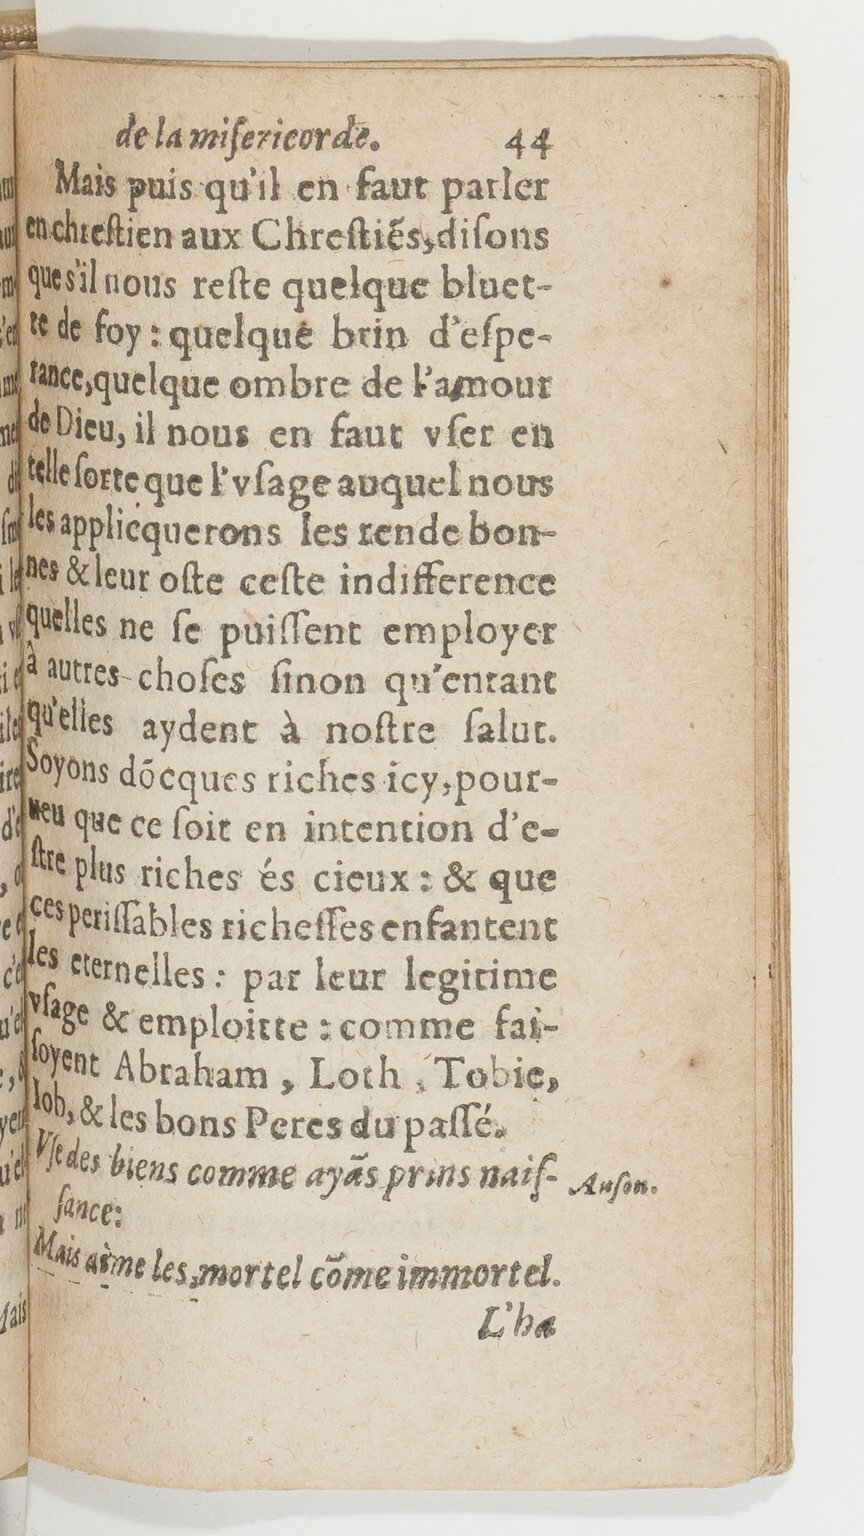 de la miſericorde. 44
Mais puis qu'il en faut parler
en chreſtien aux Chreſtiẽs, diſons
que s'il nous reſte quelque bluet-
te de foy : quelque brin d'eſpe-
rance, quelque ombre de l'amour
de Dieu, il nous en faut vſer en
telle ſorte que l'vſage auquel nous
les applicquerons les rende bon-
nes & leur oſte ceſte indifference
quelles ne ſe puiſſent employer
à autres choſes ſinon qu'entant
qu'elles aydent à noſtre ſalut.
Soyons dõcques riches icy, pour-
ueu que ce ſoit en intention d'e-
ſtre plus riches és cieux : & que
ces periſſables richeſſes enfantent
les eternelles : par leur legitime
vſage & emploitte : comme fai-
ſoyent Abraham , Loth , Tobie,
Iob, & les bons Peres du paſſé.
Vſe des biens comme ayãs prins naiſ- Auſon.
ſance:
Mais aime les, mortel cõme immortel.
L'ha